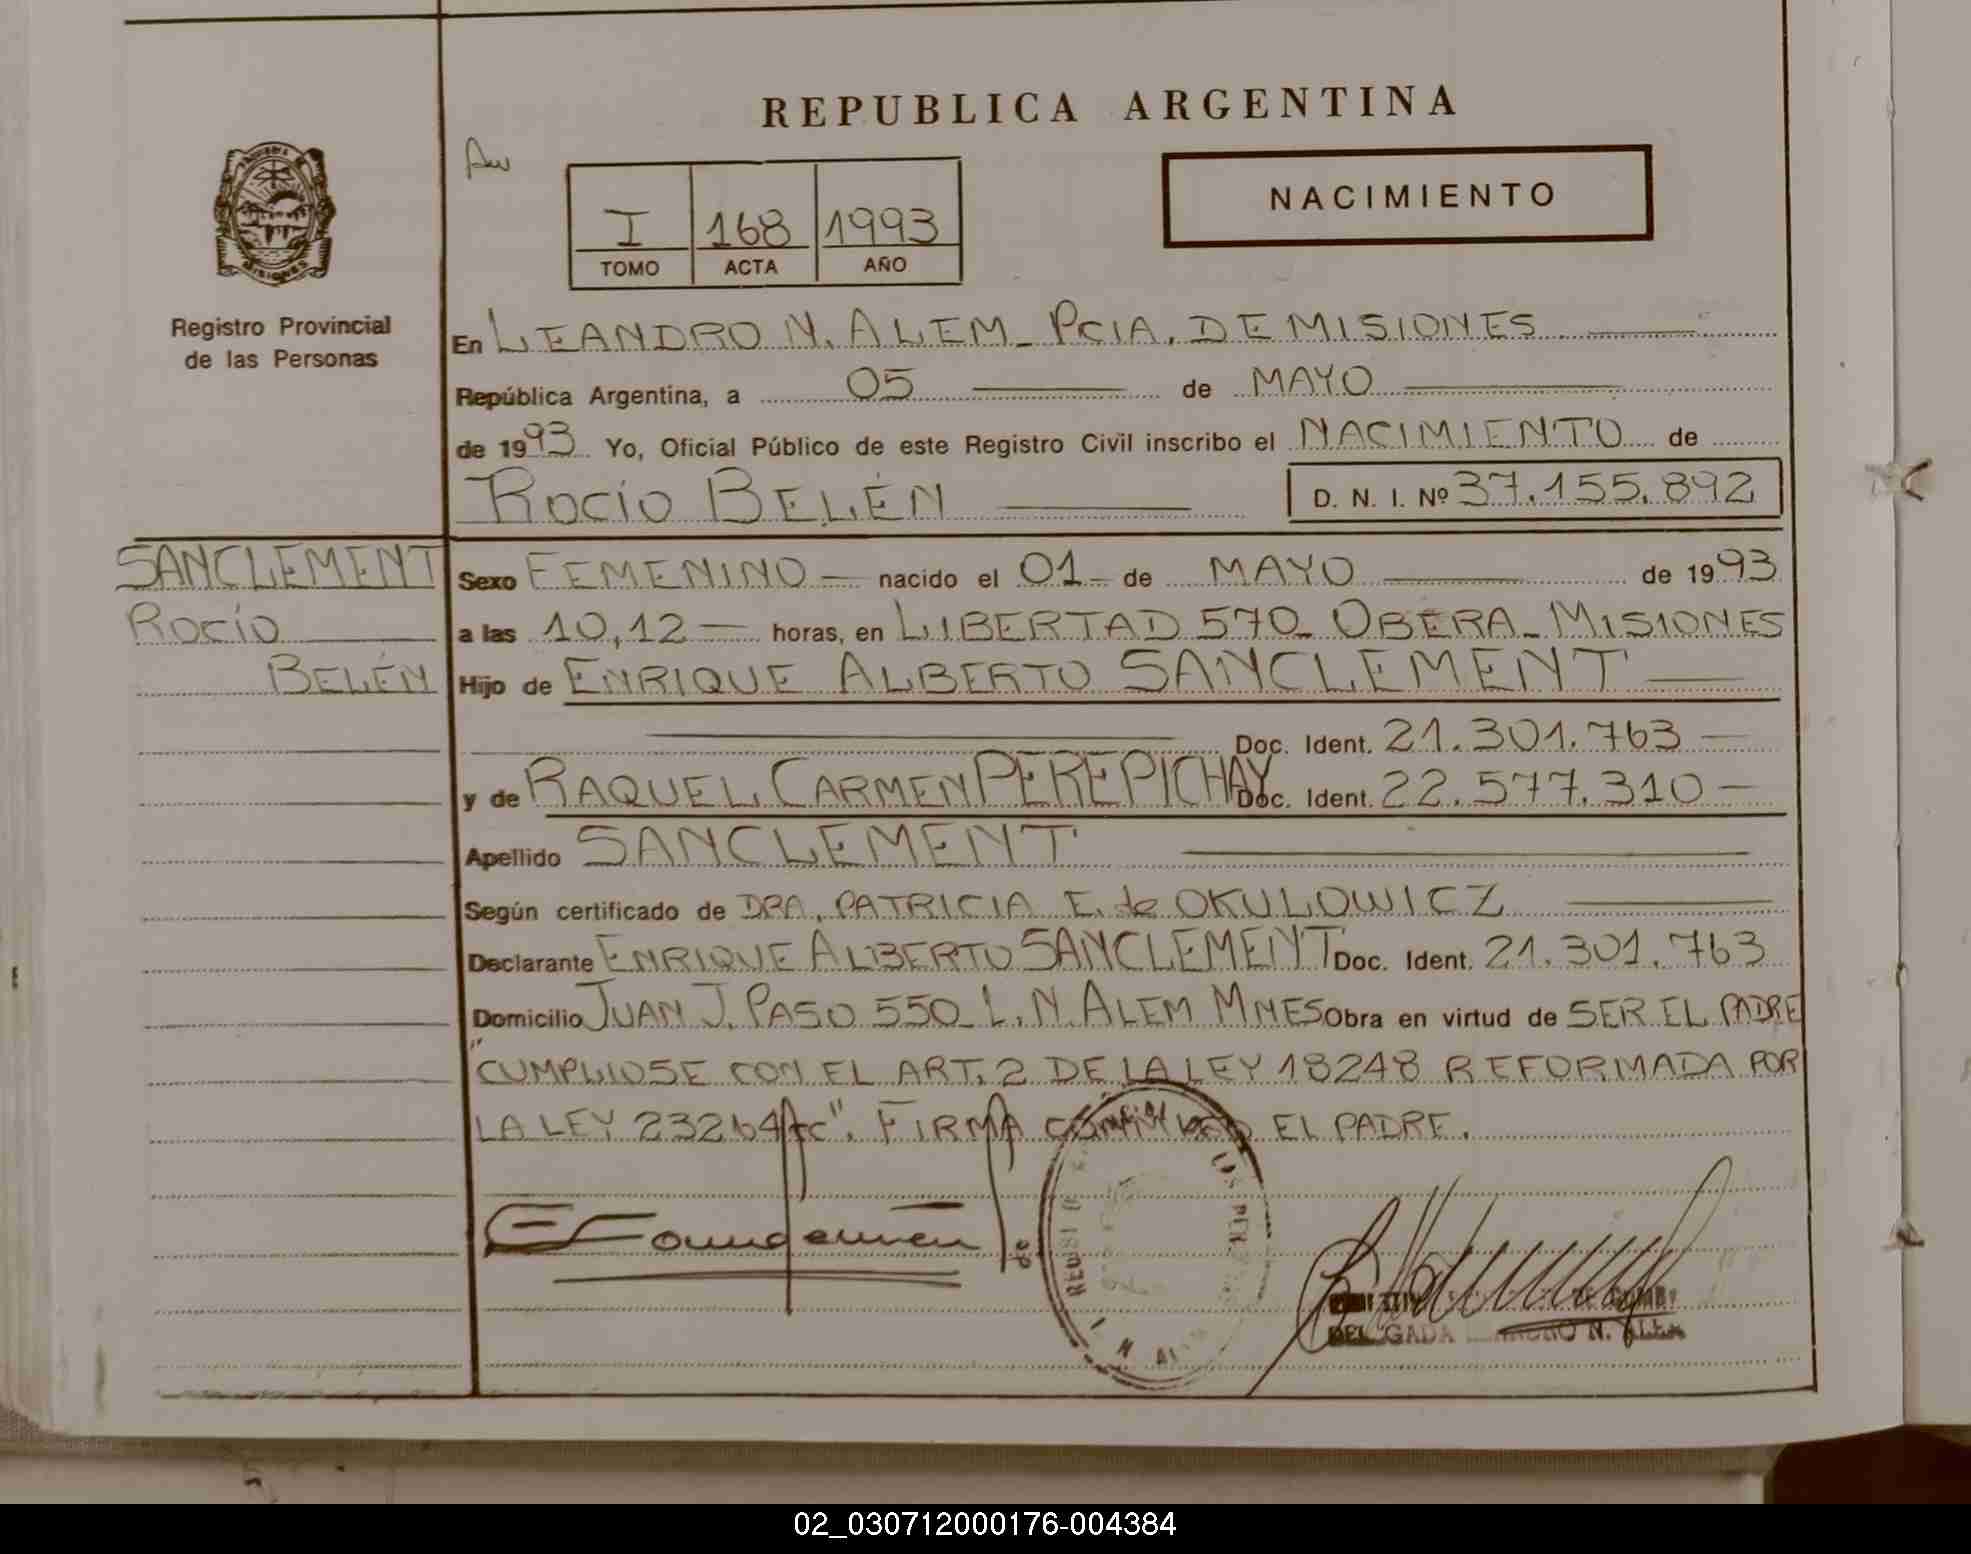 REPUBLICA ARGENTINA
NACIMIENTO
I 168 1993
TOMO ACTA AÑO
MISIONES
Registro Provincial
de las Personas
En LEANDRO N. ALEM_ PCIA. DE MISIONES
República Argentina, a 05 de MAYO
de 1993 Yo, Oficial Público de este Registro Civil inscribo el NACIMIENTO de
ROCÍO BELÉN D. N. I. Nº 37.155.892
SANCLEMENT
ROCÍO
BELÉN
Sexo FEMENINO nacido el 01 de MAYO de 1993
a las 10,12 horas, en LIBERTAD 570_ OBERA_ MISIONES
Hijo de ENRIQUE ALBERTO SANCLEMENT
Doc. Ident. 21.301.763
y de RAQUEL CARMEN PEREPICHAY Doc. Ident. 22.577.310
Apellido SANCLEMENT
Según certificado de DRA. PATRICIA E. de OKULOWICZ
Declarante ENRIQUE ALBERTO SANCLEMENT Doc. Ident. 21.301.763
Domicilio JUAN J. PASO 550_ L. N. ALEM MNES Obra en virtud de SER EL PADRE
"CUMPLIOSE CON EL ART. 2 DE LA LEY 18248 REFORMADA POR
LA LEY 23264 ". FIRMA EL PADRE.
02_030712000176-004384